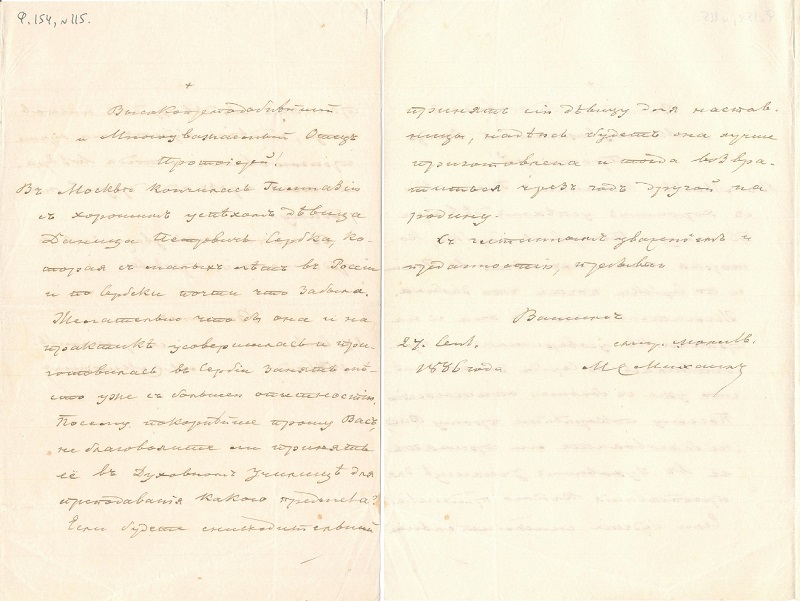 Ф. 154, №115.
+
Высокопреподобнѣйшій
и Многоуважаемый Отецъ
Протоіерей!
Въ Москвы кончилась Гимназію
съ хорошимъ успѣхомъ дѣвица
Даница Петровичъ Сербка, ко-
торая съ малыхъ лѣтъ въ Россіи
и по Сербски почти что забыла.
Желательно что бы она и на
практикѣ усовершилась и при-
готовилась въ Сербіи занять мѣ-
сто уже съ большею опытностію.
Посему покорнѣйше прошу Васъ,
не благоволите ли принять
её въ Духовномъ Училищѣ для
преподаванія какого предмета?
Если будете снисходительный
принять сію дѣвицу для настав-
ницы, надѣюсь будетъ она лучше
приготовлена и тогда возвра-
титься чрезъ годъ другой на
родину.
Съ истиннымъ уваженіемъ и
преданностію, пребываю
Вашимъ
27. Сент.
смир. молитв.
1886 года
М. Михаилъ